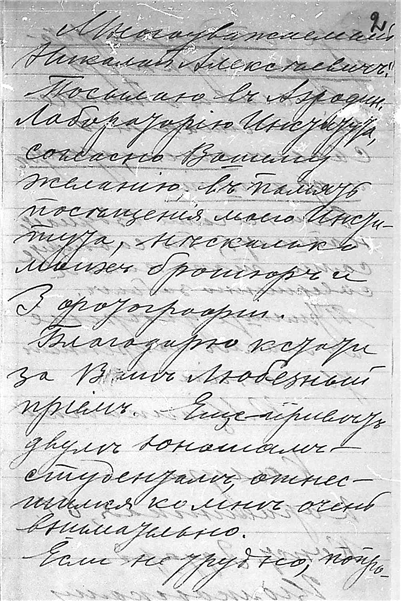 2
Многоуважаемый
Николай Алексѣевичъ!
Посылаю въ Аэродин.
Лабораторію Института,
согласно Вашему
желанію, въ память
посѣщенія моего Инсти-
тута, нѣсколько
моихъ брошюръ и
3 фотографіи.
Благодарю кстати
за Вашъ любезный
пріемъ. Еще привѣтъ
двумъ юношамъ-
студентамъ, отнес-
шимся ко мнѣ очень
внимательно.
Если не трудно, попро-